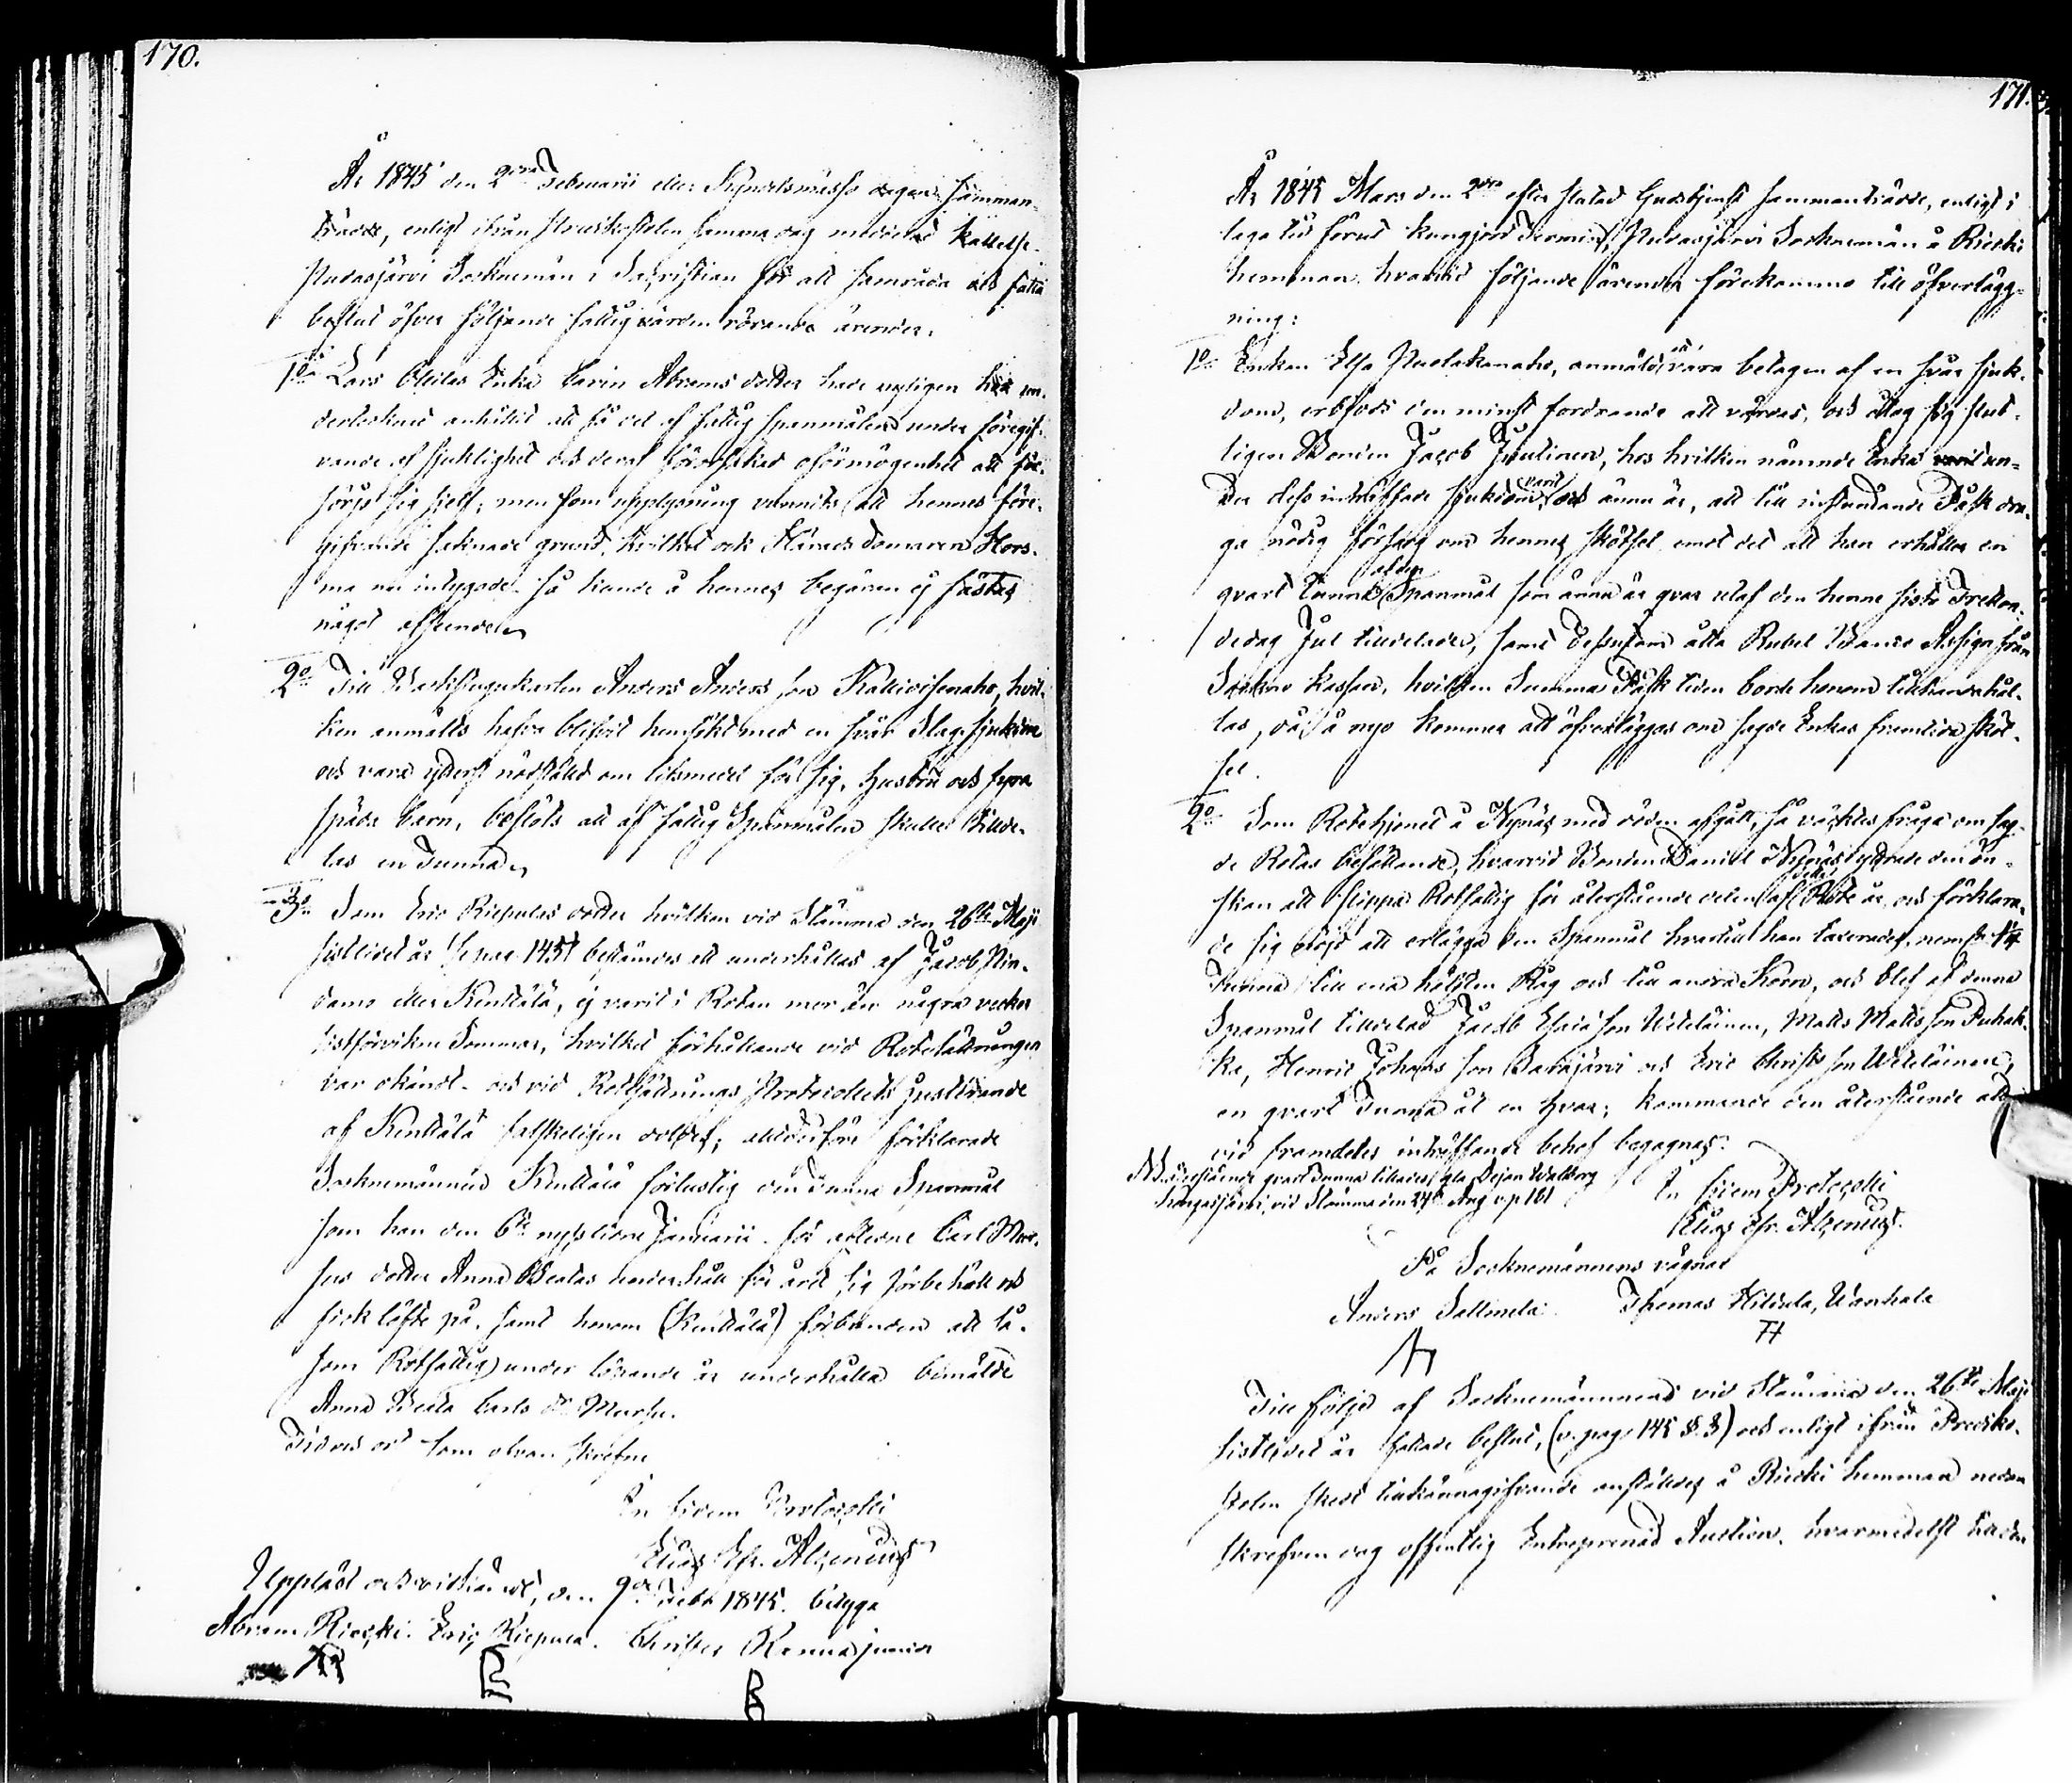 170.
År 1845 den 2dra Februarii eller Kyndelsmässo dagen samman-
trädde, enligt ifrån Predikostolen samma dag meddelad kallelse
Pudasjärvi Socknemän i Sacristian för att samråda och fatta
beslut öfver följande fattigvården rörande ärender.
1o Lars Ollilas Enka Carin Abrams dotter hade nyligen hos un-
dertecknad anhållit att få del af fattig spanmålen under föregif-
vande af sjuklighet och deraf förorsakad oförmögenhet att för-
sörja sig sjelf; men som upplysning vunnits att hennes före-
gifvande saknade grund, hvilket ock Härads domaren Hors-
ma nu intygade. så kunde å hennes begäran ej fästas
något afseende.
2o Till Backstugukarlen Anders Anders son Kallioisenaho, hvil-
ken anmälts hafva blifvit hemsökt med en svår Slagsjukdom
och vara ytterst nödställd om lifsmedel för sig, hustru och fyra
späda barn, beslöts att af fattig Spanmålen skulle tillde-
las en Tunna.
3o Som Eric Riepulas dotter hvilken vid Stämma den 26te Maji
sistlidet år (se pag. 145) bestämdes att underhållas af Jacob Nia-
damo eller Kinttälä, ej varit i Rotan mer än några veckor
sistförvikne Sommar, hvilket förhållande vid Rotesättningen
var okändt och vid Rotesättnings Protocollets justerande
af Kinttälä falskeligen doldes; alltderföre förklarade
Socknemännen Kinttälä förlustig den Tunna Spanmål
som han den 6te nyssledne Januarii för aflidne Carl Mur-
sus dotter Anna Beatas underhåll för året sig förbehöll och
fick löfte på, samt honom (Kinttälä) förbunden att så-
som Rotfattig under löpande år underhålla bemälde
Anna Beata Carls dr Mursu.
Tid och ort som ofvan skrefne
In fidem Protocolli
Elias Efr. Alcenius
Uppläst och vidkändt, den 9de Febr 1845. betyga
Abram Riecki. Eric Riepula. Christer Kennä junior
171.
År 1845 Mars den 2dra efter slutad Gudstjenst sammanträdde, enligt i
laga tid förut kungjord Termin, Pudasjärvi Socknemän å Riecki
hemman. hvarvid följande ärender förekommo till öfverlägg-
ning:
1o Enkan Elsa Puolakanaho, anmäld att vara betagen af en svår sjuk-
dom, erbjöds den minst fordrande att vårdas, och åtog sig slut-
ligen Bonden Jacob Juutinen, hos hvilken nämnde Enka un-
der dess inträffade sjukdom varit och ännu är, att till instundande Påsk dra-
ga nödig försorg om hennes skötsel emot det att han erhåller en
qvart Tunna af den Spanmål som ännu är qvar utaf den henne sistl. Tretton-
dedag Jul tilldelades, samt dessutom åtta Rubel Banco Assign från
Sockne Kassan, hvilken Summa Påsk tiden borde honom tillhandahål-
las, då å nyo kommer att öfverläggas om sagde Enkas framtida sköt-
sel.
2o Som Rotehjonet å Nynäs med döden afgått, så väcktes fråga om sag-
de Rotas besättande, hvarvid Bonden Daniel Nynäs yttrade den ön-
skan att slippa Rotfattig för återstående delen af detta Rote år, och förklara-
de sig nöjd att erlägga den Spanmål hvartill han taxerades, nemln 1 1/4
Tunna till ena hälften Råg och till andra Korn, och blef af denna
Spanmål tilldelad Jacob Esaiæ son Weteläinen, Matts Matts son Puhak-
ka, Henric Johans son Sarajärvi och Eric Christ son Weteläinen,
en qvart Tunna åt en hvar; kommande den återstående att
vid framdeles inträffande behof begagnas.
NB. återstående qvart Tunna tilldelades gla Pigan Walborg
Kongasjärvi, vid Stämma den 24de Aug. v. p. 181
In fidem Protocolli
Elias Efr. Alcenius.
På Socknemännens vägnar
Anders Sallmela. Thomas Hiltula, Wanhala
TH
Till följe af Socknemännens vid Stämma den 26te Maji
sistlidet år fattade beslut, (v. pag. 145 §. 3) och enligt ifrån Predikо-
stolen skedt tillkännagifvande anställdes å Riecki hemman nedan
skrefven dag offentlig Entreprenad Auction. hvarmedelst